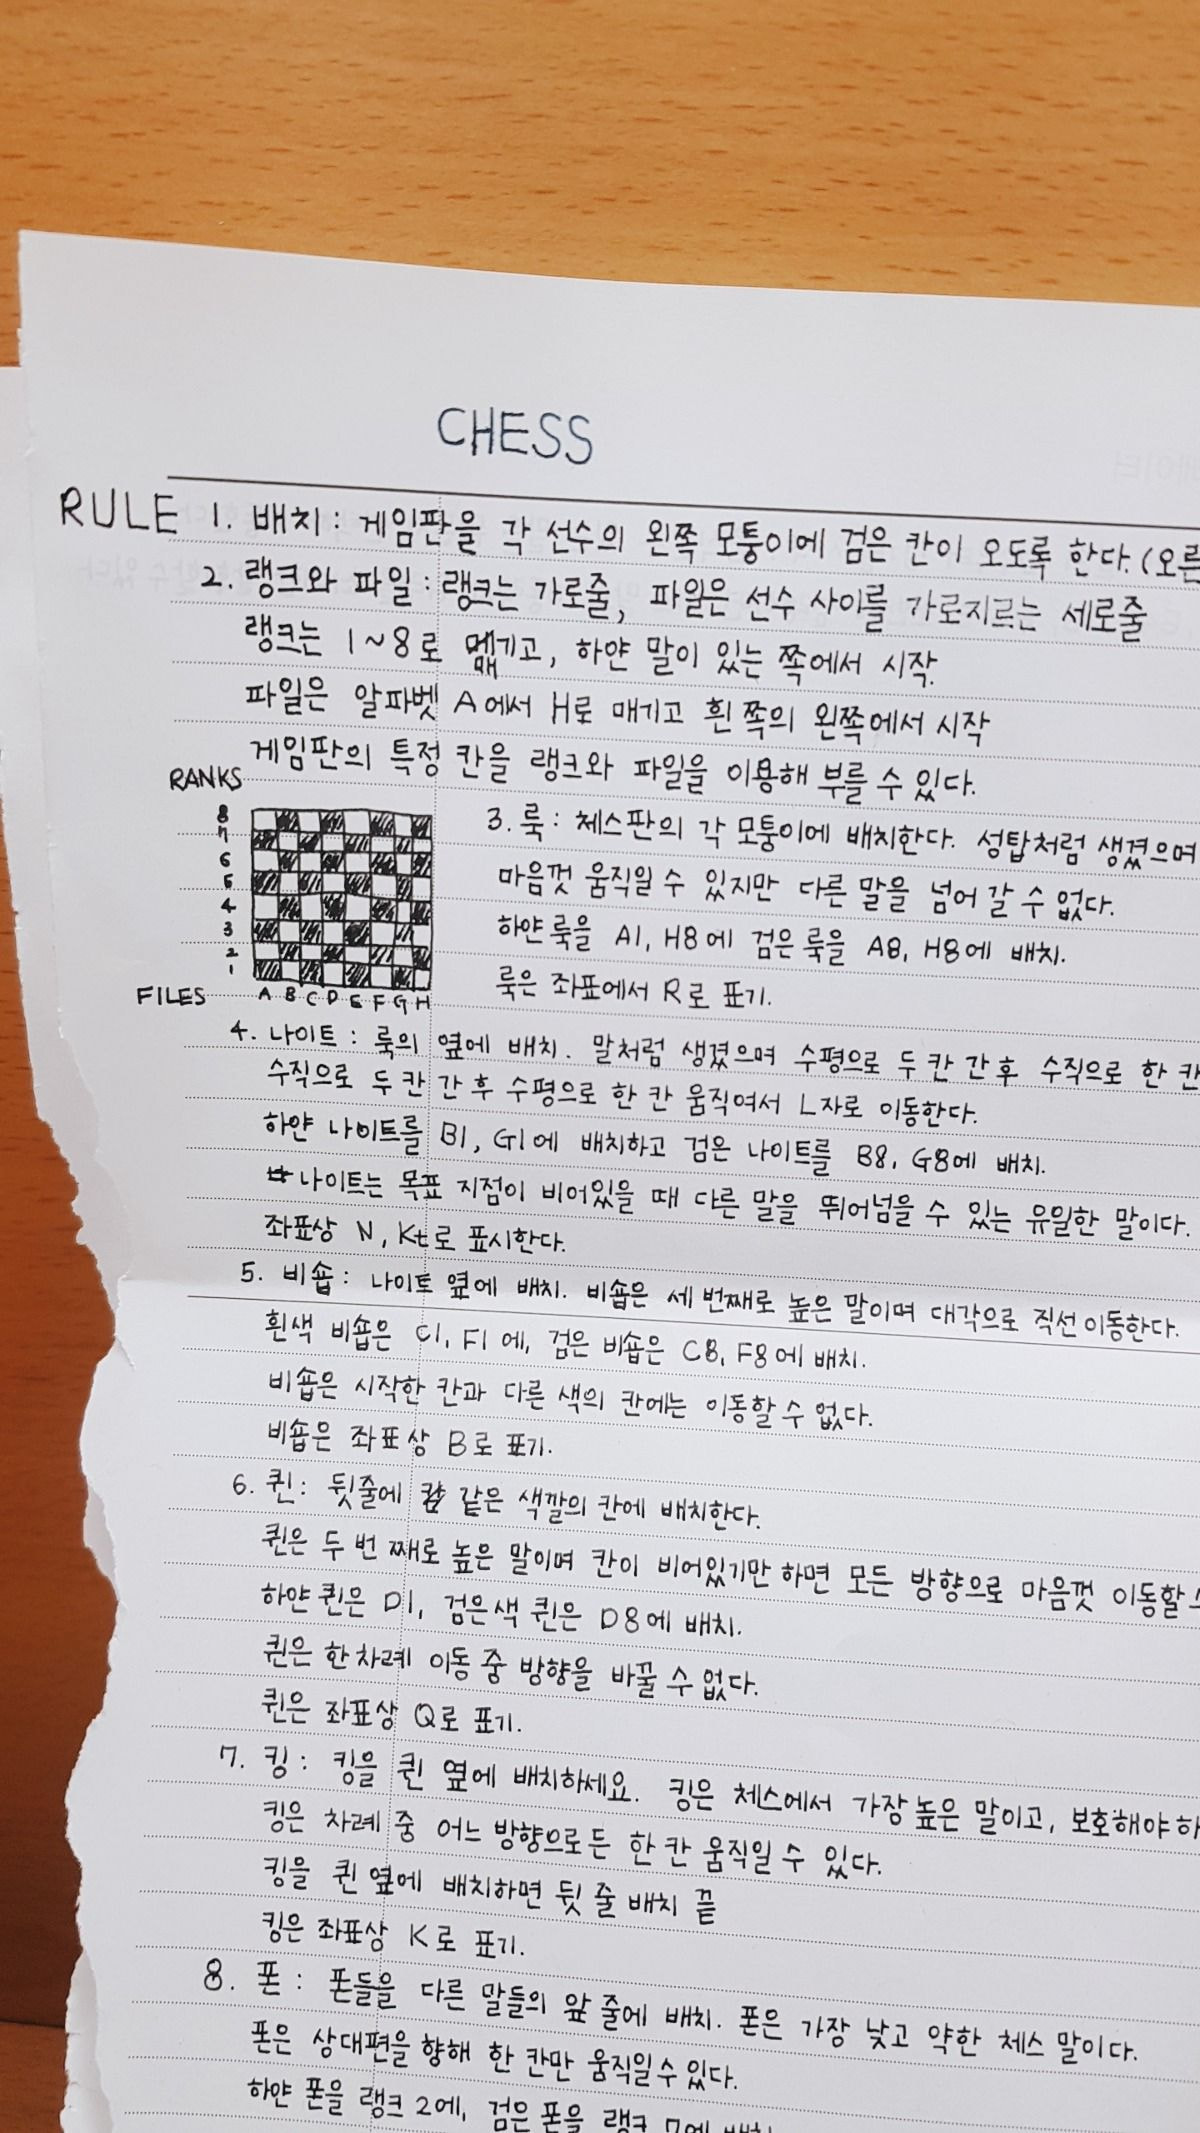 CHESS
RULE 1. 배치: 게임판을 각 선수의 왼쪽 모퉁이에 검은 칸이 오도록 한다. (오른
2. 랭크와 파일: 랭크는 가로줄, 파일은 선수 사이를 가로지르는 세로줄
랭크는 1~8로 매기고, 하얀 말이 있는 쪽에서 시작.
파일은 알파벳 A에서 H로 매기고 흰 쪽의 왼쪽에서 시작
게임판의 특정 칸을 랭크와 파일을 이용해 부를 수 있다.
RANKS
8
7
6
5
4
3
2
1
FILES A B C D E F G H
3. 룩: 체스판의 각 모퉁이에 배치한다. 성탑처럼 생겼으며
마음껏 움직일 수 있지만 다른 말을 넘어 갈 수 없다.
하얀 룩을 A1, H8에 검은 룩을 A8, H8에 배치.
룩은 좌표에서 R로 표기.
4. 나이트: 룩의 옆에 배치. 말처럼 생겼으며 수평으로 두 칸 간 후 수직으로 한 칸
수직으로 두 칸 간 후 수평으로 한 칸 움직여서 L자로 이동한다.
하얀 나이트를 B1, G1에 배치하고 검은 나이트를 B8, G8에 배치.
나이트는 목표 지점이 비어있을 때 다른 말을 뛰어넘을 수 있는 유일한 말이다.
좌표상 N, Kt로 표시한다.
5. 비숍: 나이트 옆에 배치. 비숍은 세 번째로 높은 말이며 대각으로 직선 이동한다.
흰색 비숍은 C1, F1에, 검은 비숍은 C8, F8에 배치.
비숍은 시작한 칸과 다른 색의 칸에는 이동할 수 없다.
비숍은 좌표상 B로 표기.
6. 퀸: 뒷줄에 같은 색깔의 칸에 배치한다.
퀸은 두 번 째로 높은 말이며 칸이 비어있기만 하면 모든 방향으로 마음껏 이동할
하얀 퀸은 D1, 검은색 퀸은 D8에 배치.
퀸은 한 차례 이동 중 방향을 바꿀 수 없다.
퀸은 좌표상 Q로 표기.
7. 킹: 킹을 퀸 옆에 배치하세요. 킹은 체스에서 가장 높은 말이고, 보호해야 하
킹은 차례 중 어느 방향으로든 한 칸 움직일 수 있다.
킹을 퀸 옆에 배치하면 뒷 줄 배치 끝
킹은 좌표상 K로 표기.
8. 폰: 폰들을 다른 말들의 앞 줄에 배치. 폰은 가장 낮고 약한 체스 말이다.
폰은 상대편을 향해 한 칸만 움직일 수 있다.
하얀 폰을 랭크 2에, 검은 폰을 랭크 7에 배치